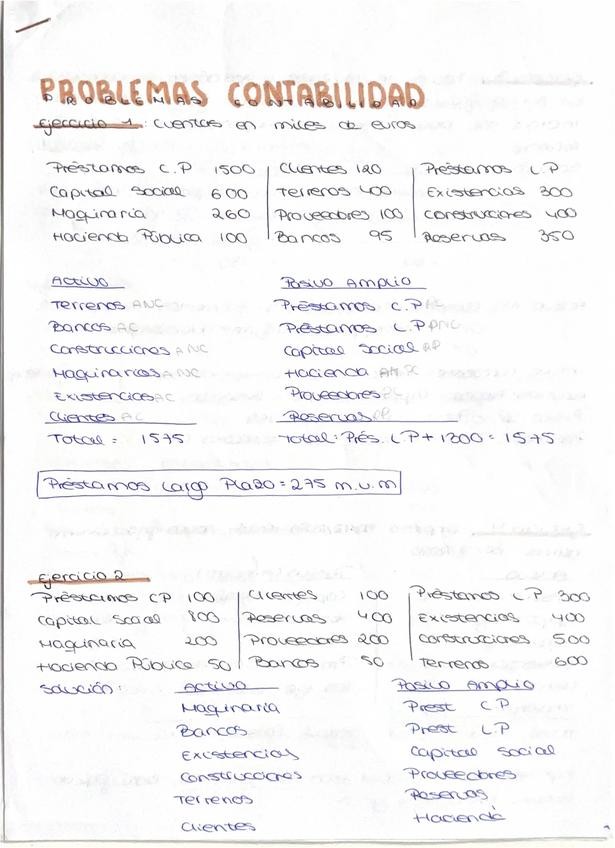 PROBLEMAS CONTABILIDAD
Ejercicio 1: Cuentas en miles de euros
Préstamos C.P 1500 Clientes 120 Préstamos L.P
Capital Social 600 Terrenos 400 Existencias 300
Maquinaria 260 Proveedores 100 Construcciones 400
Hacienda Pública 100 Bancos 95 Reservas 350
Activo Pasivo Amplio
Terrenos ANC Préstamos C.P
Bancos AC Préstamos L.P PNC
Construcciones ANC Capital Social
Maquinarias ANC Hacienda
Existencias AC Proveedores
Clientes AC Reservas
Total = 1575 Total: Prés. L.P + 1300 = 1575
Préstamos Largo Plazo = 275 m.u.m
Ejercicio 2
Préstamos CP 100 Clientes 100 Préstamos L.P 300
Capital Social 800 Reservas 400 Existencias 400
Maquinaria 200 Proveedores 200 Construcciones 500
Hacienda Pública 50 Bancos 50 Terrenos 600
Solución: Activo Pasivo Amplio
Maquinaria Prest C.P
Bancos Prest L.P
Existencias Capital Social
Construcciones Proveedores
Terrenos Reservas
Clientes Hacienda